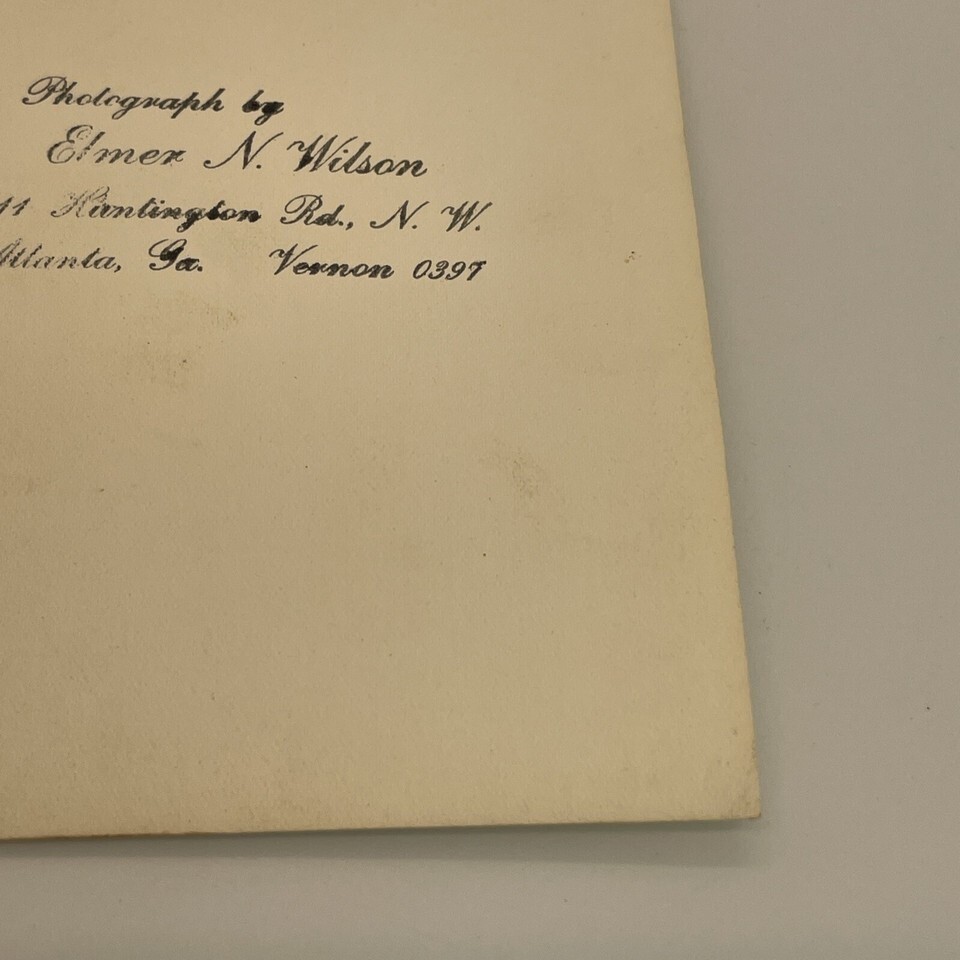 Photograph by
Elmer N. Wilson
11 Huntington Rd., N. W.
Atlanta, Ga. Vernon 0397